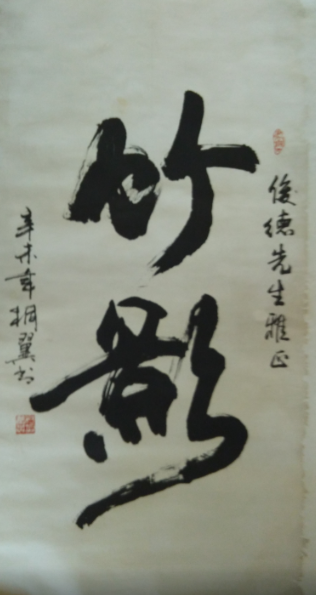 俊德先生雅正
竹影
辛未年桐翼书